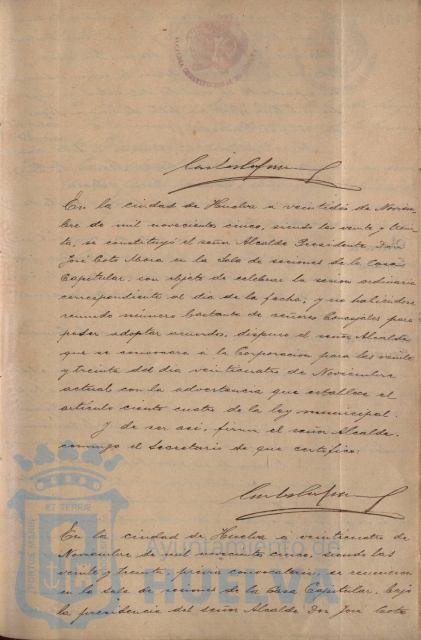 En la ciudad de Huelva a veintidós de Noviem-
bre de mil novecientos cinco, siendo las veinte y trein-
ta, se constituyó el señor Alcalde Presidente Don
José Coto Mora en la Sala de sesiones de la Casa
Capitular, con objeto de celebrar la sesion ordinaria
correspondiente al dia de la fecha; y no habiéndose
reunido número bastante de señores Concejales para
poder adoptar acuerdos, dispuso el señor Alcalde
que se convocara á la Corporacion para las veinte
y treinta del dia veinticuatro de Noviembre
actual con la advertencia que establece el
artículo ciento cuatro de la ley municipal.
Y de ser asi, firma el señor Alcalde,
conmigo el Secretario de que certifico:
En la ciudad de Huelva a veinticuatro de
Noviembre de mil novecientos cinco, siendo las
veinte y treinta, previa convocatoria se reunieron
en la sala de sesiones de la Casa Capitular, bajo
la presidencia del señor Alcalde Don José Coto
Ayuntamiento de
HUELVA